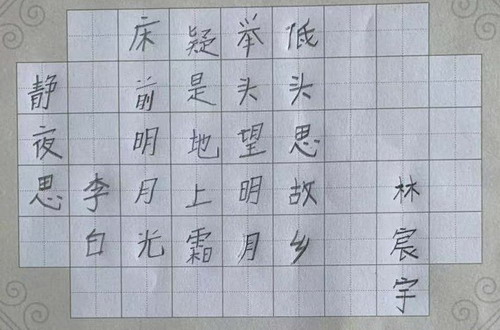 静夜思
李白
床前明月光
疑是地上霜
举头望明月
低头思故乡
林宸宇